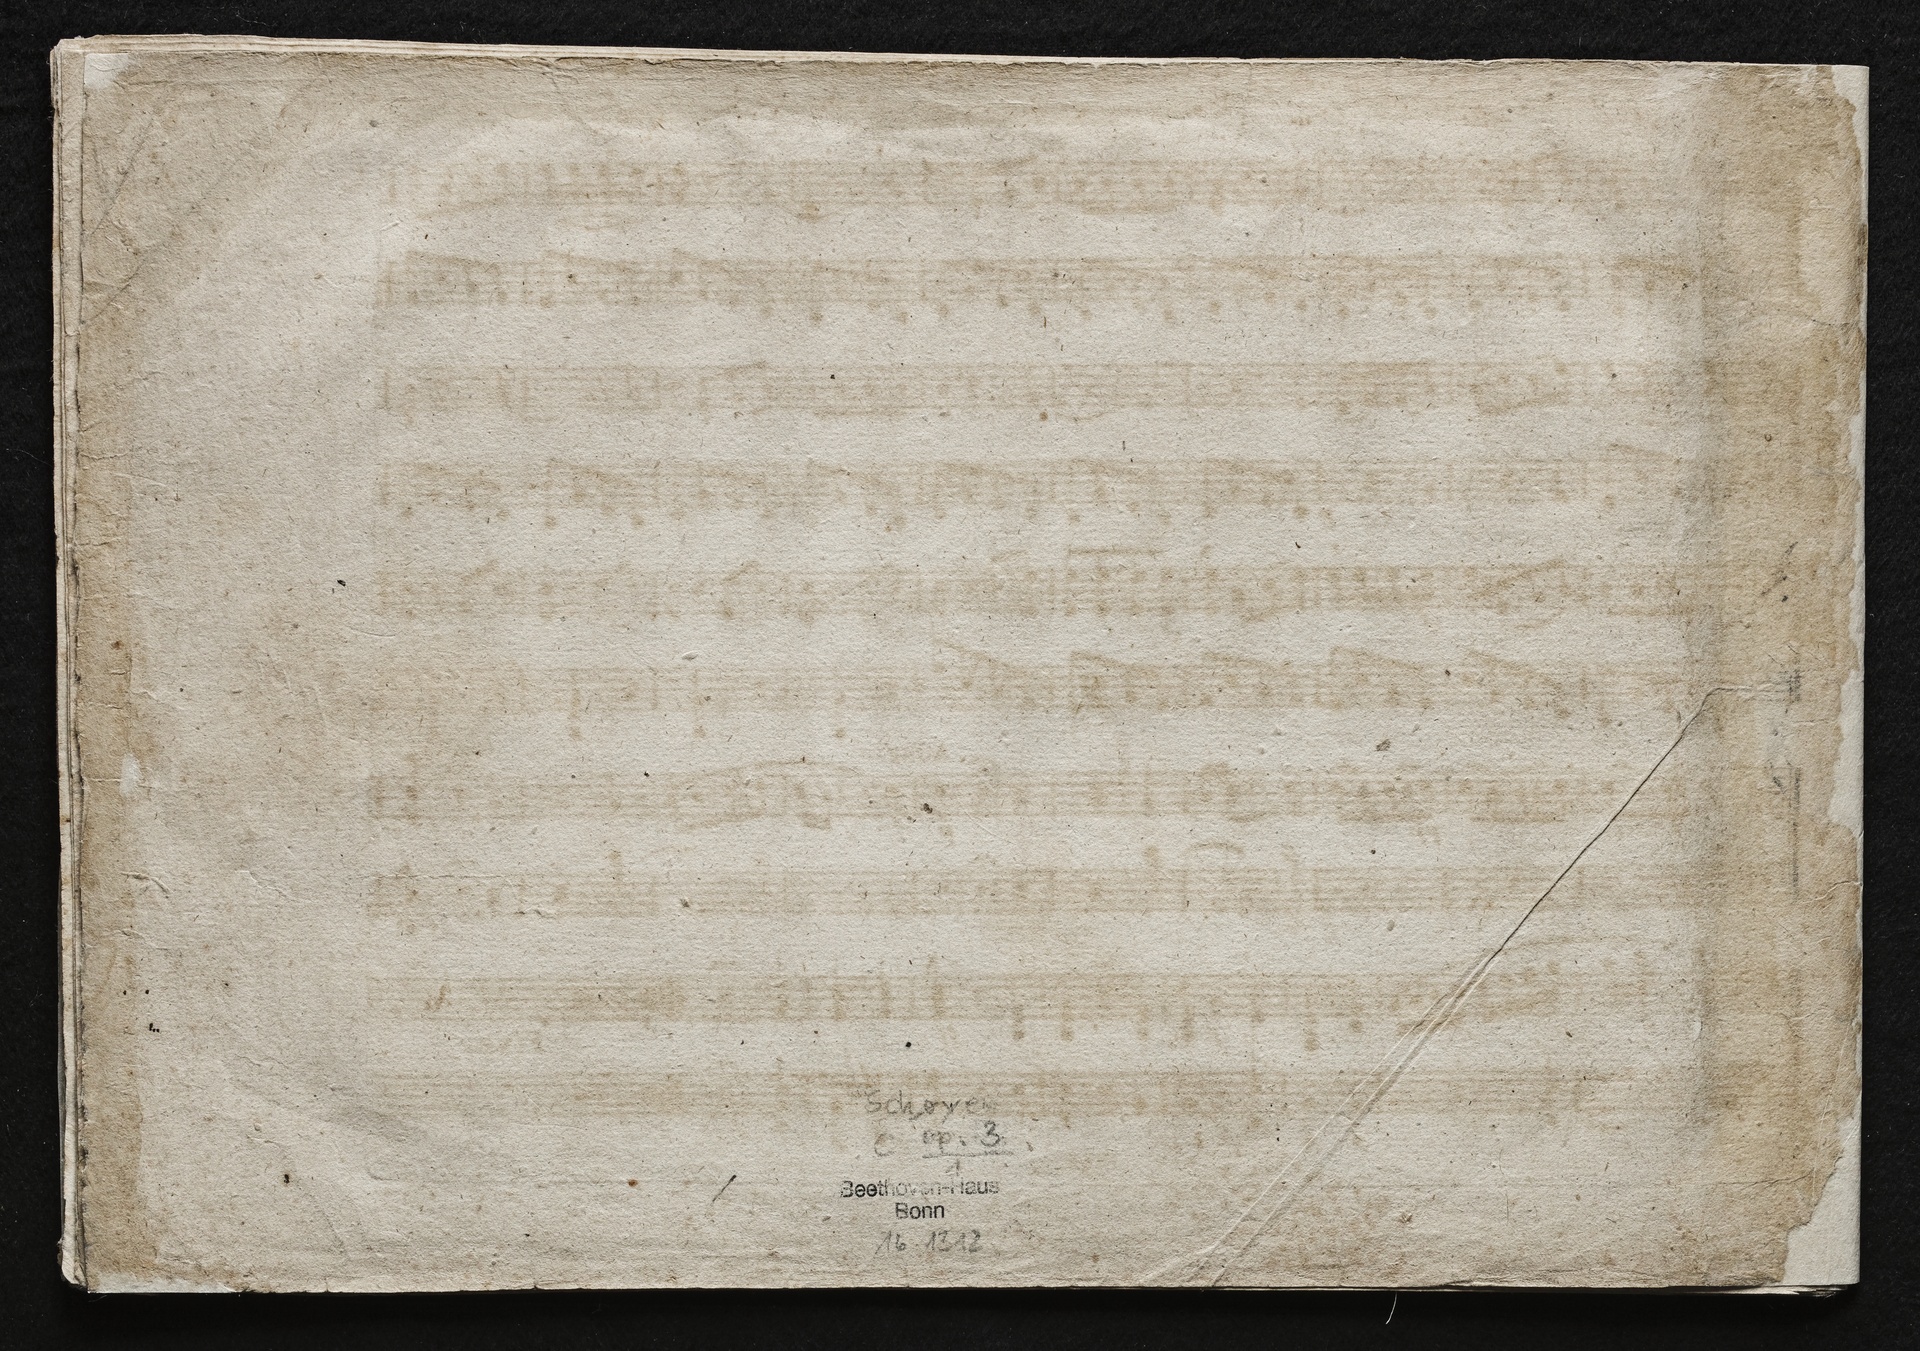 C op. 3
1
Beethoven-Haus
Bonn
16. 1312